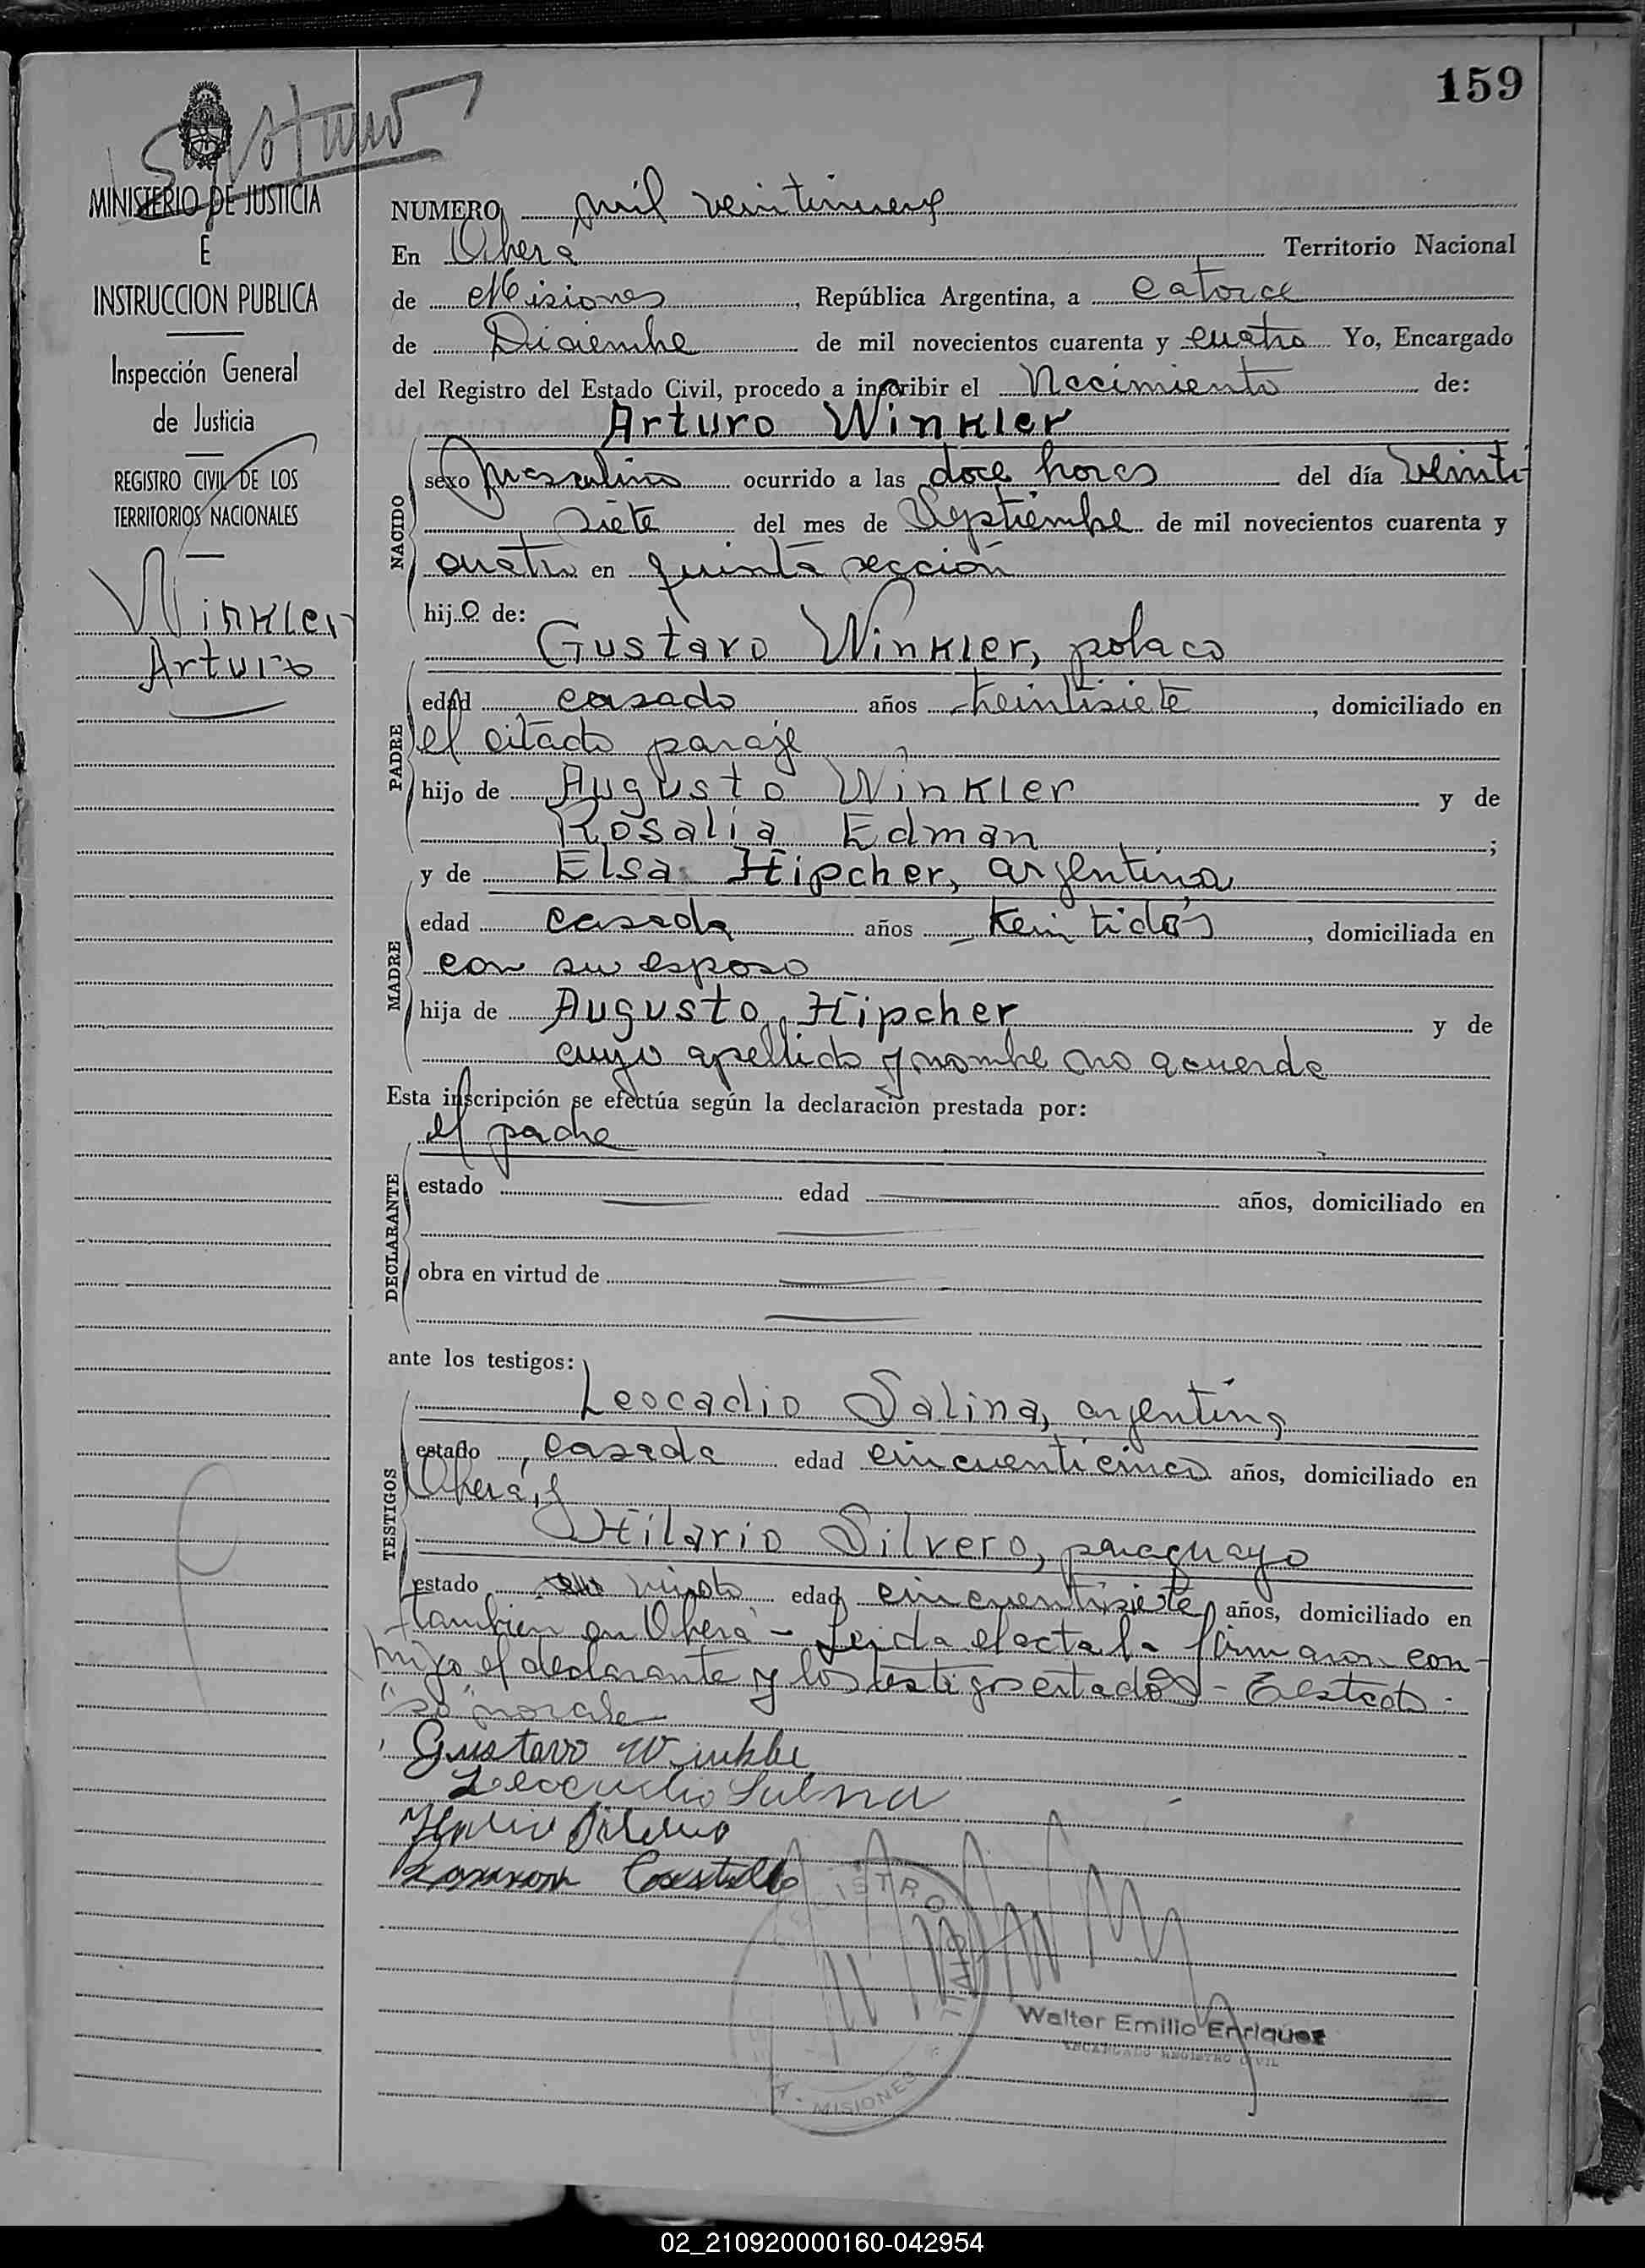 159
MINISTERIO DE JUSTICIA
E
INSTRUCCION PUBLICA
Inspección General
de Justicia
REGISTRO CIVIL DE LOS
TERRITORIOS NACIONALES
Winkler
Arturo
NUMERO mil veintinueve
En Oberá Territorio Nacional
de Misiones, República Argentina, a catorce
de Diciembre de mil novecientos cuarenta y cuatro Yo, Encargado
del Registro del Estado Civil, procedo a inscribir el Nacimiento de:
Arturo Winkler
NACIDO
sexo masculino ocurrido a las doce horas del día veinti-
siete del mes de Septiembre de mil novecientos cuarenta y
cuatro en quinta sección
hijo de:
Gustavo Winkler, polaco
PADRE
edad casado años treintisiete, domiciliado en
el citado paraje
hijo de Augusto Winkler y de
Rosalia Edman;
y de Elsa Hipcher, argentina
MADRE
edad casada años veintidós, domiciliada en
con su esposo
hija de Augusto Hipcher y de
cuyo apellido y nombre no acuerda
Esta inscripción se efectúa según la declaración prestada por:
el padre
DECLARANTE
estado edad años, domiciliado en
obra en virtud de
ante los testigos:
Leocadio Salina, argentino
TESTIGOS
estado casado edad cincuenticinco años, domiciliado en
Oberá, y
Hilario Silvero, paraguayo
estado viudo edad cincuentisiete años, domiciliado en
tambien en Oberá - Leida el acta la firmaron con-
migo el declarante y los testigos citados - Testado:
no vale
Gustavo Winkler
Leocadio Salina
Hilario Silvero
Ramon Castillo
REGISTRO CIVIL
MISIONES
Walter Emilio Enriquez
ENCARGADO REGISTRO CIVIL
02_210920000160-042954